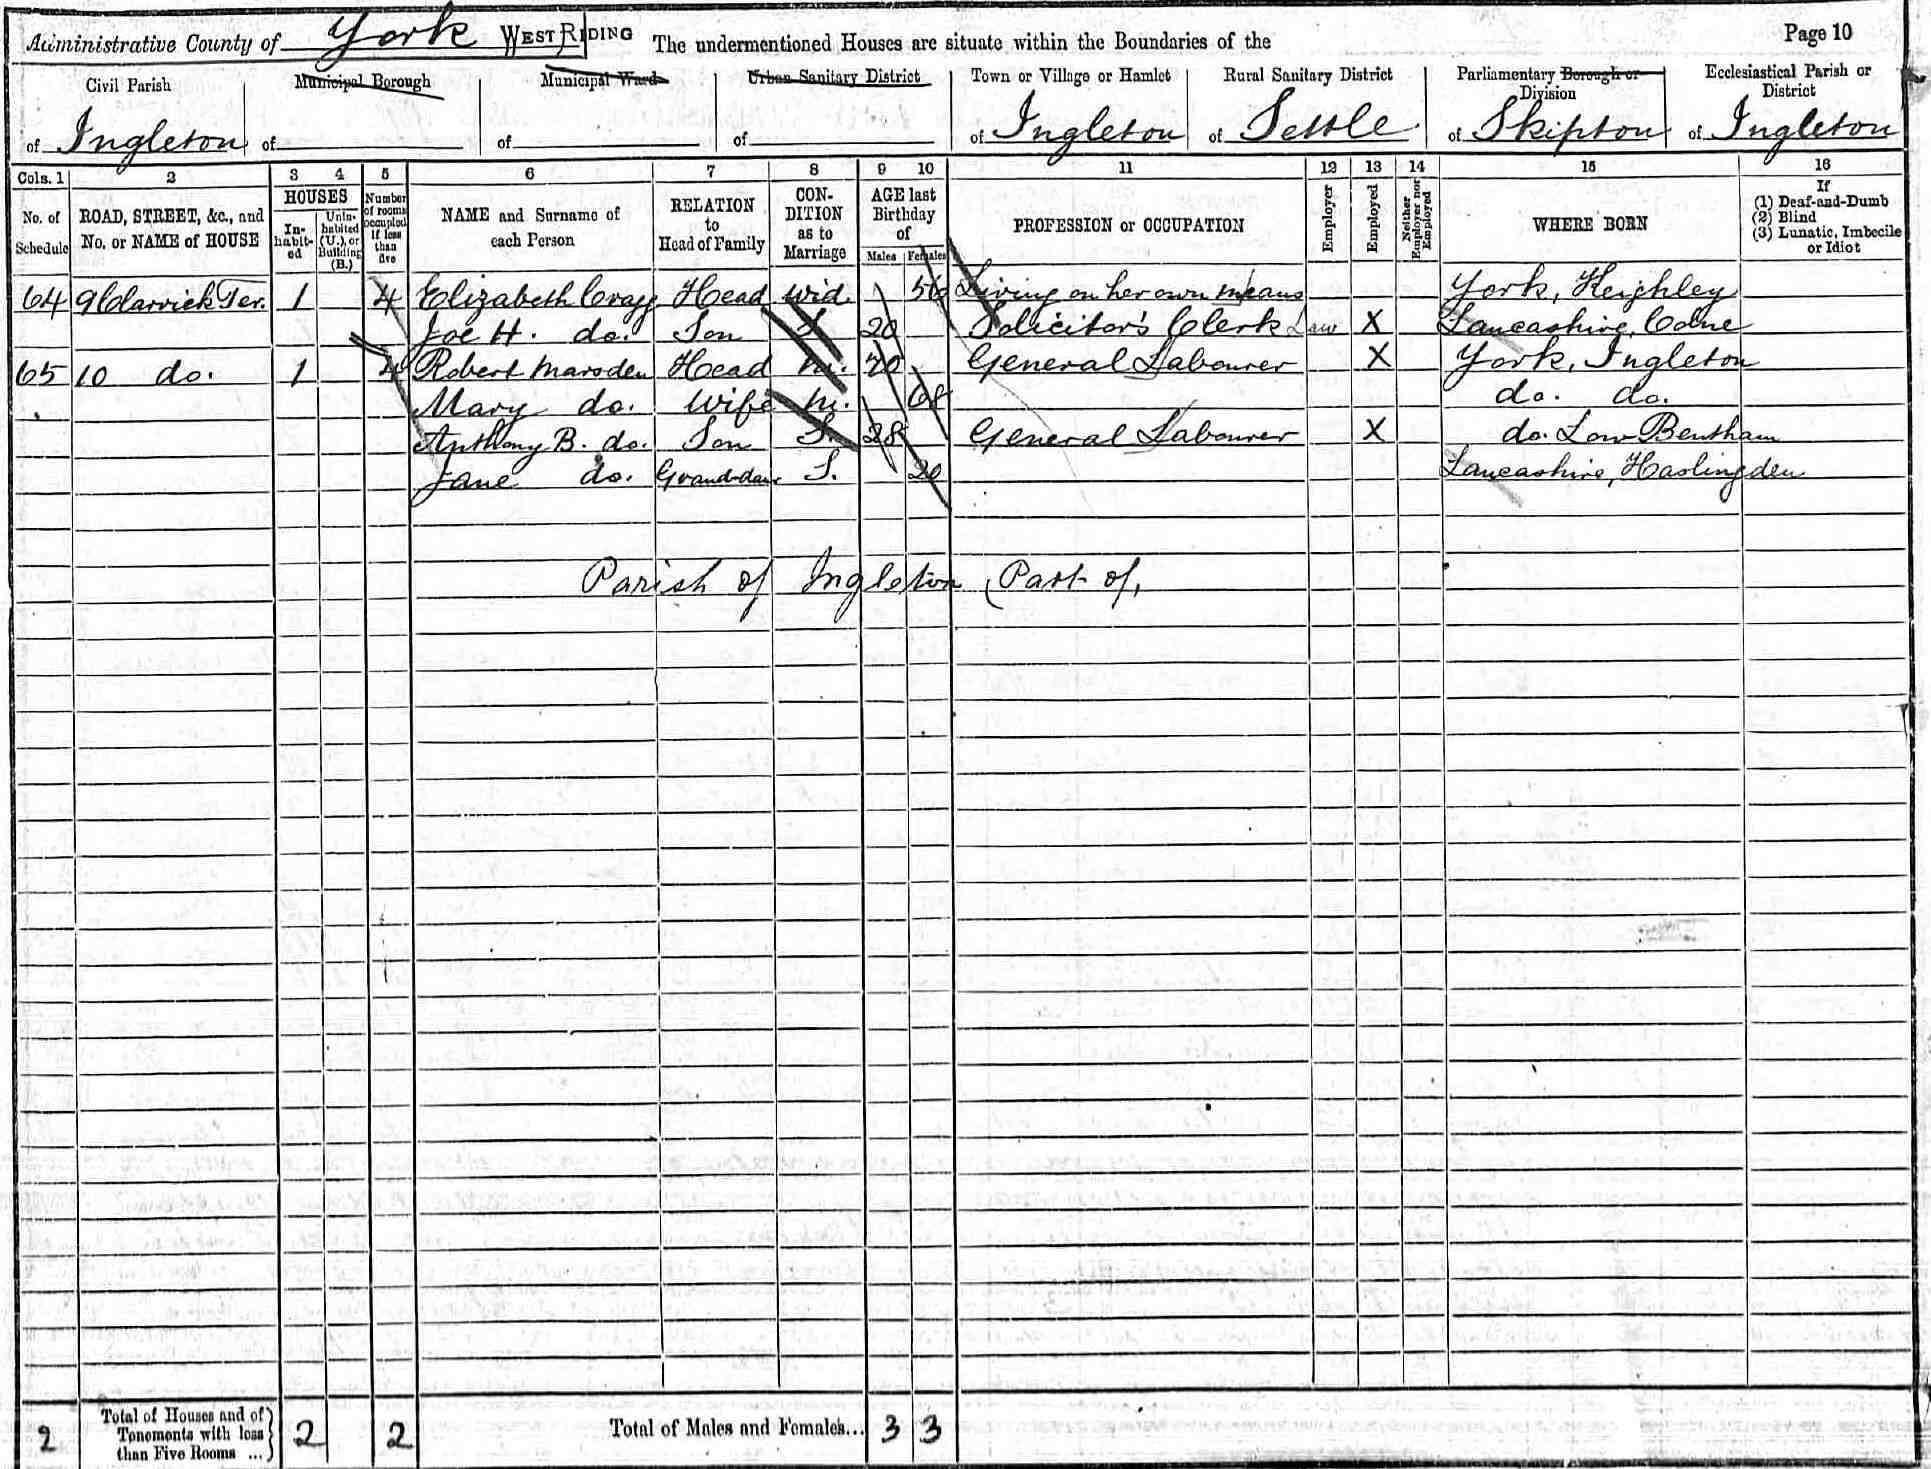 Administrative County of York WEST RIDING The undermentioned Houses are situate within the Boundaries of the Page 10
Civil Parish Municipal Borough Municipal Ward Urban Sanitary District Town or Village or Hamlet Rural Sanitary District Parliamentary Borough or Division Ecclesiastical Parish or District
of Ingleton of of of of Ingleton of Settle of Skipton of Ingleton
Cols. 1 2 3 4 5 6 7 8 9 10 11 12 13 14 15 16
No. of Schedule
ROAD, STREET, &c., and No. or NAME of HOUSE
HOUSES
In-habit-ed
Unin-habited (U.), or Building (B.)
Number of rooms occupied if less than five
NAME and Surname of each Person
RELATION to Head of Family
CON-DITION as to Marriage
AGE last Birthday of
Males Females
PROFESSION or OCCUPATION
Employer
Employed
Neither Employer nor Employed
WHERE BORN
If
(1) Deaf-and-Dumb
(2) Blind
(3) Lunatic, Imbecile or Idiot
64 9 Clarrick Ter. 1 4 Elizabeth Cragg Head Wid 56 Living on her own means York, Keighley
Joe H. do. Son S 20 Solicitor's Clerk Law X Lancashire, Colne
65 10 do. 1 4 Robert Marsden Head M. 70 General Labourer X York, Ingleton
Mary do. Wife M. 68 do. do.
Anthony B. do. Son S. 28 General Labourer X do. Low Bentham
Jane do. Grand-daur S. 20 Lancashire, Haslingden
Parish of Ingleton (Part of,
2 Total of Houses and of Tenements with less than Five Rooms ...} 2 2 Total of Males and Females... 3 3